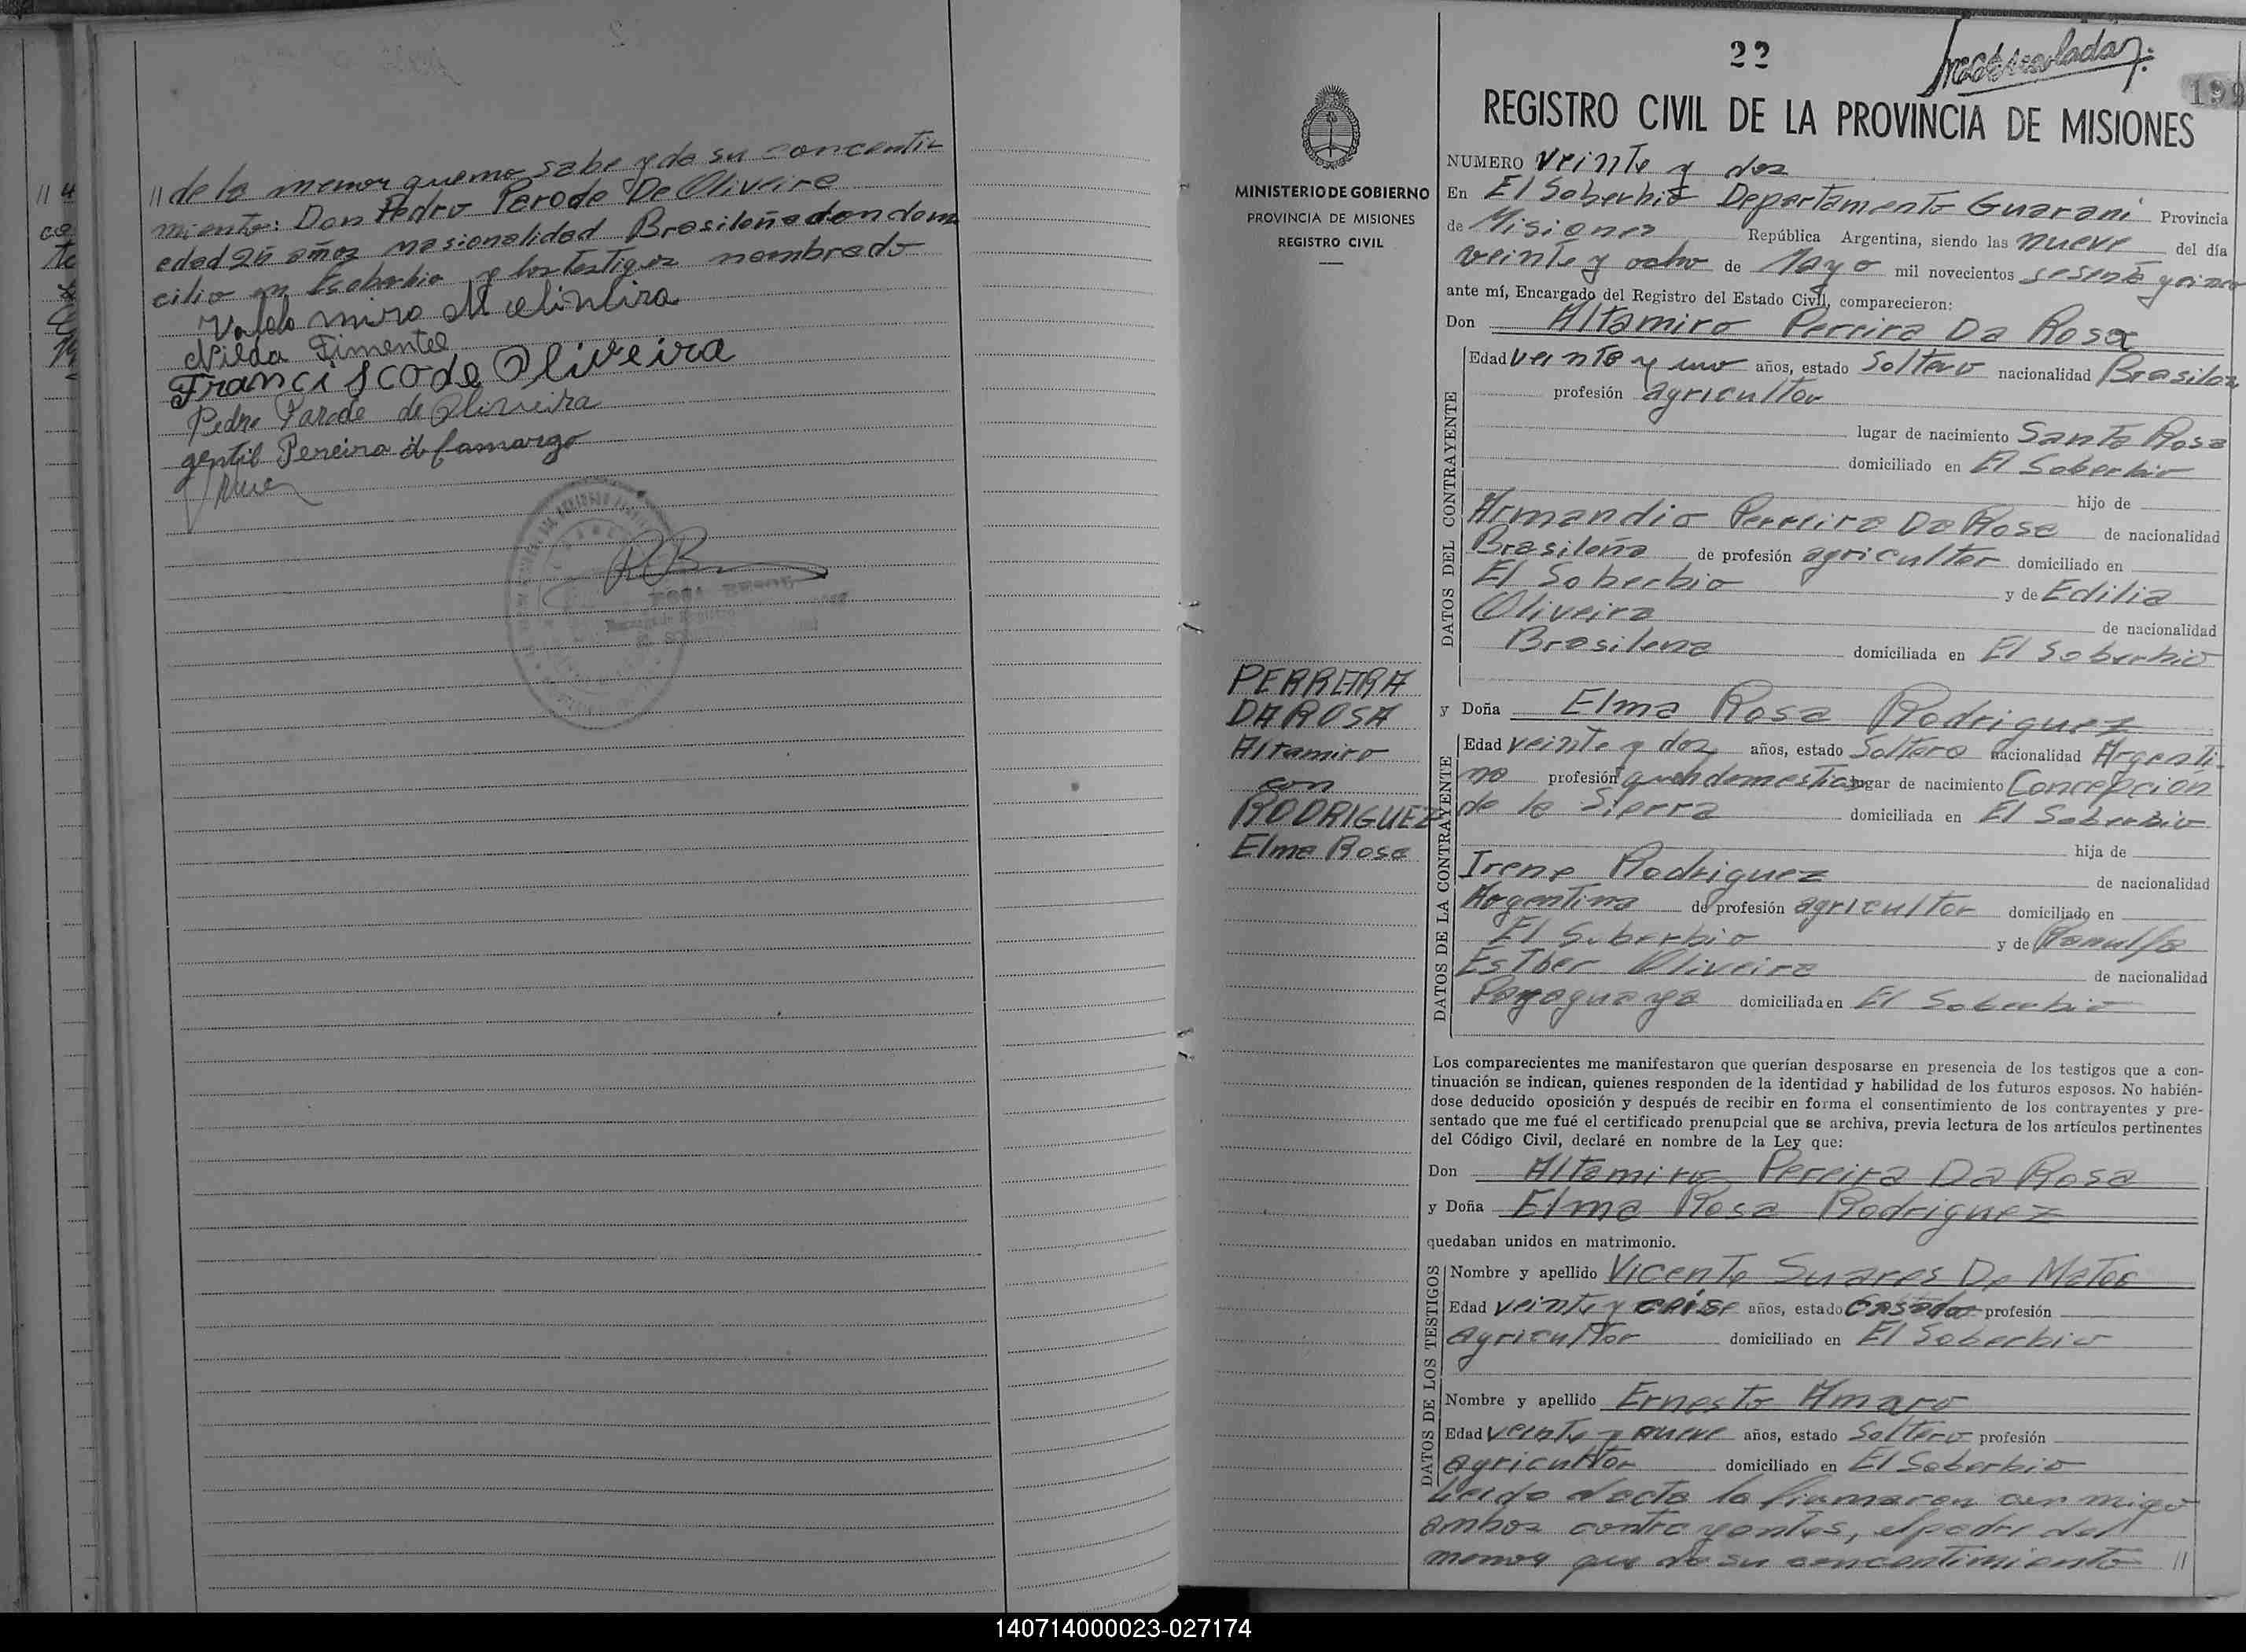 // de la menor que no sabe y da su concenti-
miento: Don Pedro Parode De Oliveira
edad 26 años nasionalidad Brasileña don domi
cilio en Soberbio y los testigos nombrado
Valdo miro M
Nilda Pimentel
Francisco de Oliveira
Pedro Parode de Oliveira
gentil Pereira de Camargo
22
199
REGISTRO CIVIL DE LA PROVINCIA DE MISIONES
MINISTERIO DE GOBIERNO
PROVINCIA DE MISIONES
REGISTRO CIVIL
NUMERO veinte y dos
En El Soberbio Departamento Guarani Provincia
de Misiones República Argentina, siendo las nueve del día
veinte y ocho de Mayo mil novecientos sesenta y cinco
ante mí, Encargado del Registro del Estado Civil, comparecieron:
Don Altamiro Pereira Da Rosa
DATOS DEL CONTRAYENTE
Edad veinte y uno años, estado Soltero nacionalidad Brasileña
profesión agricultor
lugar de nacimiento Santa Rosa
domiciliado en El Soberbio
hijo de
Armandio Perreira Da Rosa de nacionalidad
Brasileña de profesión agricultor domiciliado en
El Soberbio y de Edilia
Oliveira de nacionalidad
Brasilena domiciliada en El Soberbio
PERREIRA
DA ROSA
Altamiro
con
RODRIGUEZ
Elma Rosa
y Doña Elma Rosa Rodriguez
DATOS DE LA CONTRAYENTE
Edad veinte y dos años, estado Soltera nacionalidad Argenti-
na profesión queh domesticos lugar de nacimiento Concepción
de la Sierra domiciliada en El Soberbio
hija de
Irene Rodriguez de nacionalidad
Argentina de profesión agricultor domiciliado en
El Soberbio y de Ranulfa
Esther Oliveira de nacionalidad
Paraguaya domiciliada en El Soberbio
Los comparecientes me manifestaron que querían desposarse en presencia de los testigos que a con-
tinuación se indican, quienes responden de la identidad y habilidad de los futuros esposos. No habién-
dose deducido oposición y después de recibir en forma el consentimiento de los contrayentes y pre-
sentado que me fué el certificado prenupcial que se archiva, previa lectura de los artículos pertinentes
del Código Civil, declaré en nombre de la Ley que:
Don Altamiro Pereira Da Rosa
y Doña Elma Rosa Rodriguez
quedaban unidos en matrimonio.
DATOS DE LOS TESTIGOS
Nombre y apellido Vicente Suares De Matos
Edad veinte y años, estado Casado profesión
Agricultor domiciliado en El Soberbio
Nombre y apellido Ernesto Amaro
Edad veinte y nueve años, estado Soltero profesión
agricultor domiciliado en El Soberbio
Leida el acta la firmaron con migo
ambos contrayentes, el padre del
menor que da su concentimiento //
140714000023-027174